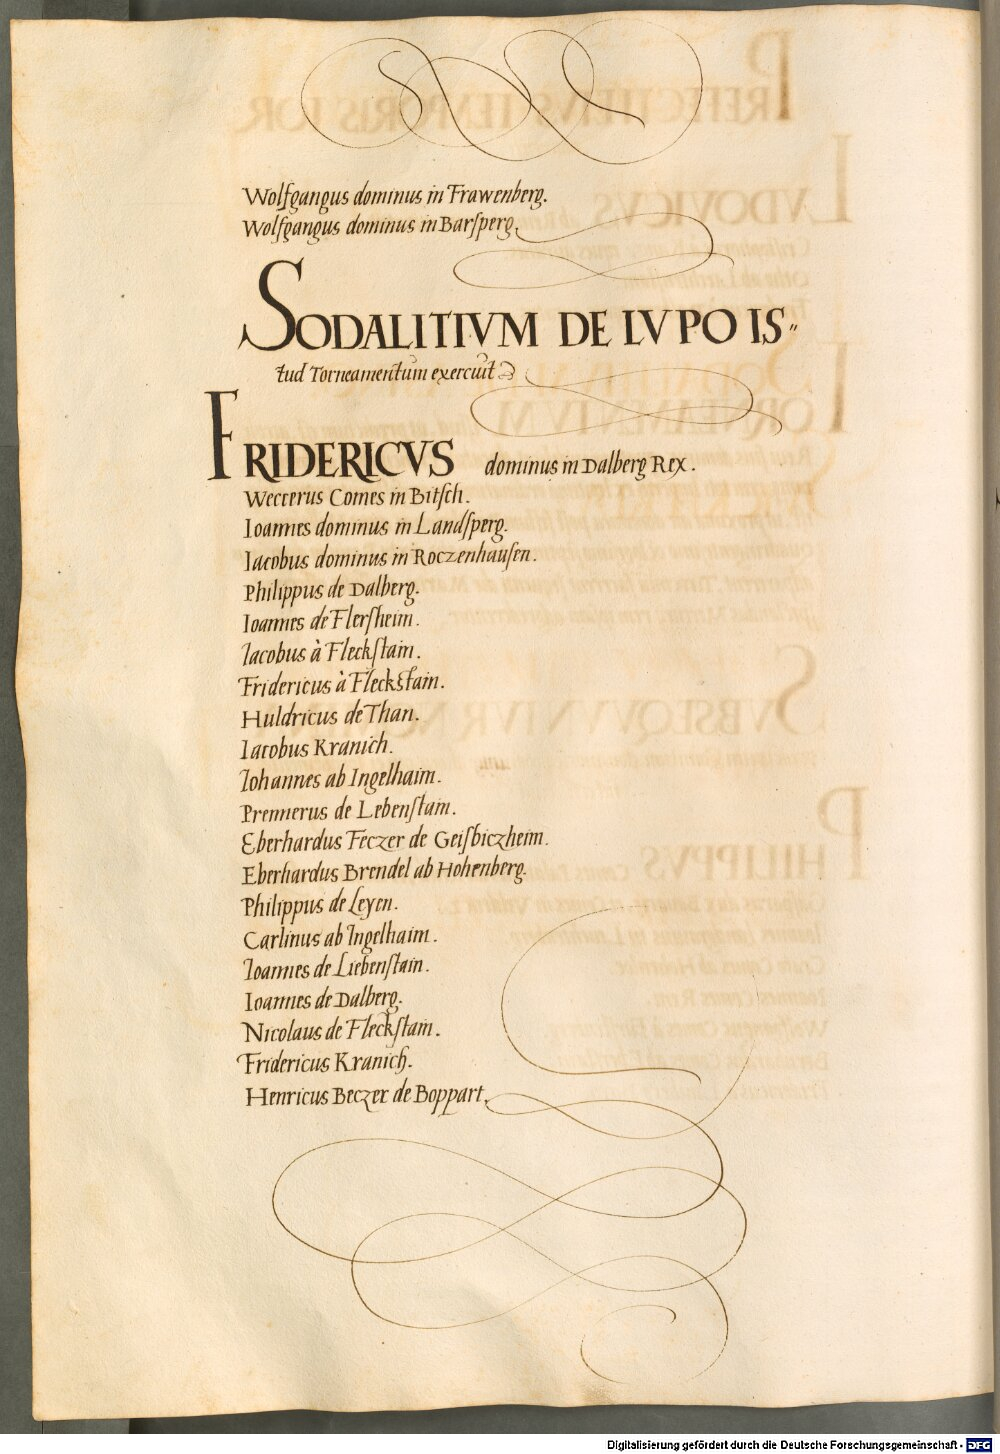 Wolfgangus dominus in Frawenberg.
Wolfgangus dominus in Barſperg.
SODALITIVM DE LVPO IS〃
tud Torneamentum exercuit
FRIDERICVS dominus in Dalberg Rex.
Weccerus Comes in Bitſch.
Ioannes dominus in Landſperg.
Iacobus dominus in Roczenhauſen.
Philippus de Dalberg.
Ioannes de Flerſheim.
Iacobus à Fleckſtain.
Fridericus à Fleckſtain.
Huldricus de Than.
Iacobus Kranich.
Iohannes ab Ingelhaim.
Prennerus de Lebenſtain.
Eberhardus Feczer de Geiſbiczheim.
Eberhardus Brendel ab Hohenberg.
Philippus de Leyen.
Carlinus ab Ingelhaim.
Ioannes de Liebenſtain.
Ioannes de Dalberg.
Nicolaus de Fleckſtain.
Fridericus Kranich.
Henricus Beczer de Boppart.
Digitalisierung gefördert durch die Deutsche Forschungsgemeinschaft - DFG